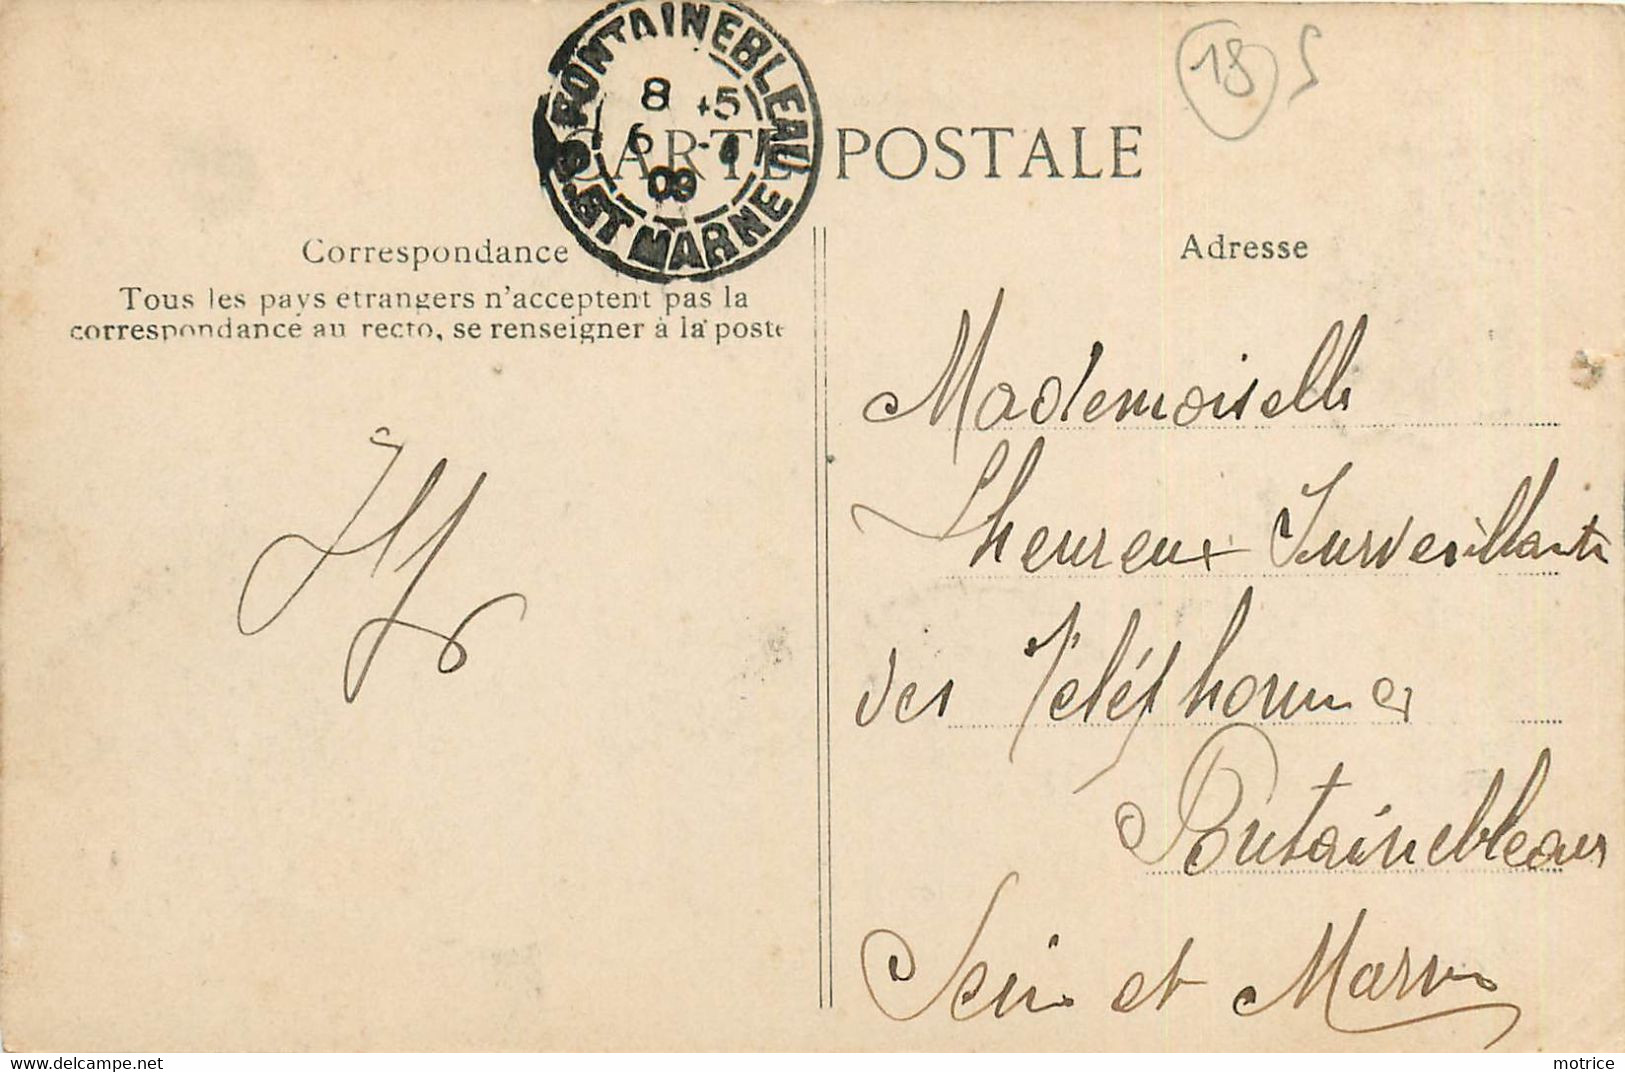 FONTAINEBLEAU
8 +5
6
09
S. ET MARNE
18
CARTE POSTALE
Correspondance
Tous les pays etrangers n'acceptent pas la
correspondance au recto, se renseigner à la poste
Adresse
Mademoiselle
Lheureux Surveillante
des Téléphones
Fontainebleau
Seine et Marne
delcampe.net
motrice